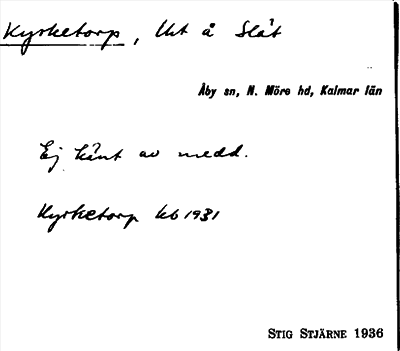 Kyrketorp, Ut å Slät
Åby sn, N. Möre hd, Kalmar län
Ej känt av medd.
Kyrketorp kb 1931
STIG STJÄRNE 1936